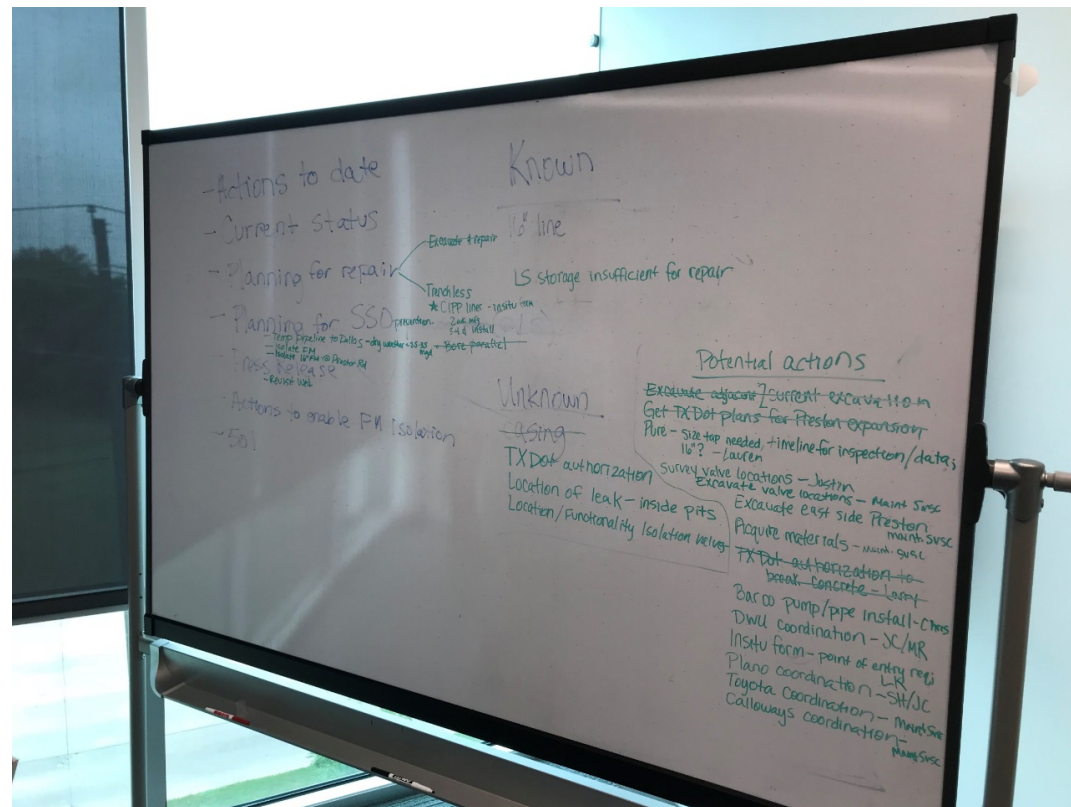 - Actions to date
- Current status
- Planning for repair
Excavate & repair
Trenchless
★ CIPP lines - insitu form
2 wk mfg
3-4 d install
- Bore parallel
- Planning for SSO prevention
- Temp pipeline to Dallas - dry weather
- Isolate FM
- Isolate 16" FM @ Preston Rd
- Press Release
- Actions to enable FM isolation
Known
16" line
LS storage insufficient for repair
Unknown
casing
TXDot authorization
Location of leak - inside pits
Location/Functionality Isolation valves
Potential actions
Excavate adjacent 2 current excavation
Get TXDot plans for Preston expansion
Pure - size tap needed, timeline for inspection/data,
16"? - Lauren
Survey valve locations - Justin
Excavate valve locations - Maint Svsc
Excavate east side Preston
maint. svsc
Acquire materials - Maint. svsc
TXDot authorization to
break concrete - Larry
Barco pump/pipe install - Chas
DWU coordination - JC/MR
Insitu form - point of entry req;
LK
Plano coordination - SH/JC
Toyota coordination - Maint Svsc
Calloways coordination -
Maint Svsc